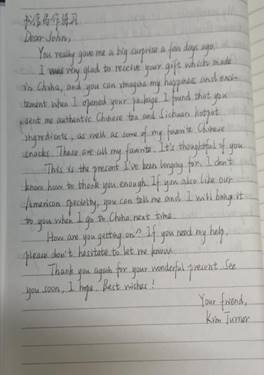 书信写作练习
Dear John,
You really gave me a big surprise a few days ago.
I was very glad to receive your gift which made
in China, and you can imagine my happiness and exci-
tement when I opened your package. I found that you
sent me authentic Chinese tea and Sichuan hotpot
ingredients, as well as some of my favorite Chinese
snacks. These are all my favorite. It's thoughtful of you
This is the present I've been longing for. I don't
know how to thank you enough. If you also like our
American specialty, you can tell me and I will bring it
to you when I go to China next time.
How are you getting on? If you need my help,
please don't hesitate to let me know.
Thank you again for your wonderful present. See
you soon, I hope. Best wishes!
Your friend,
Kim Turner